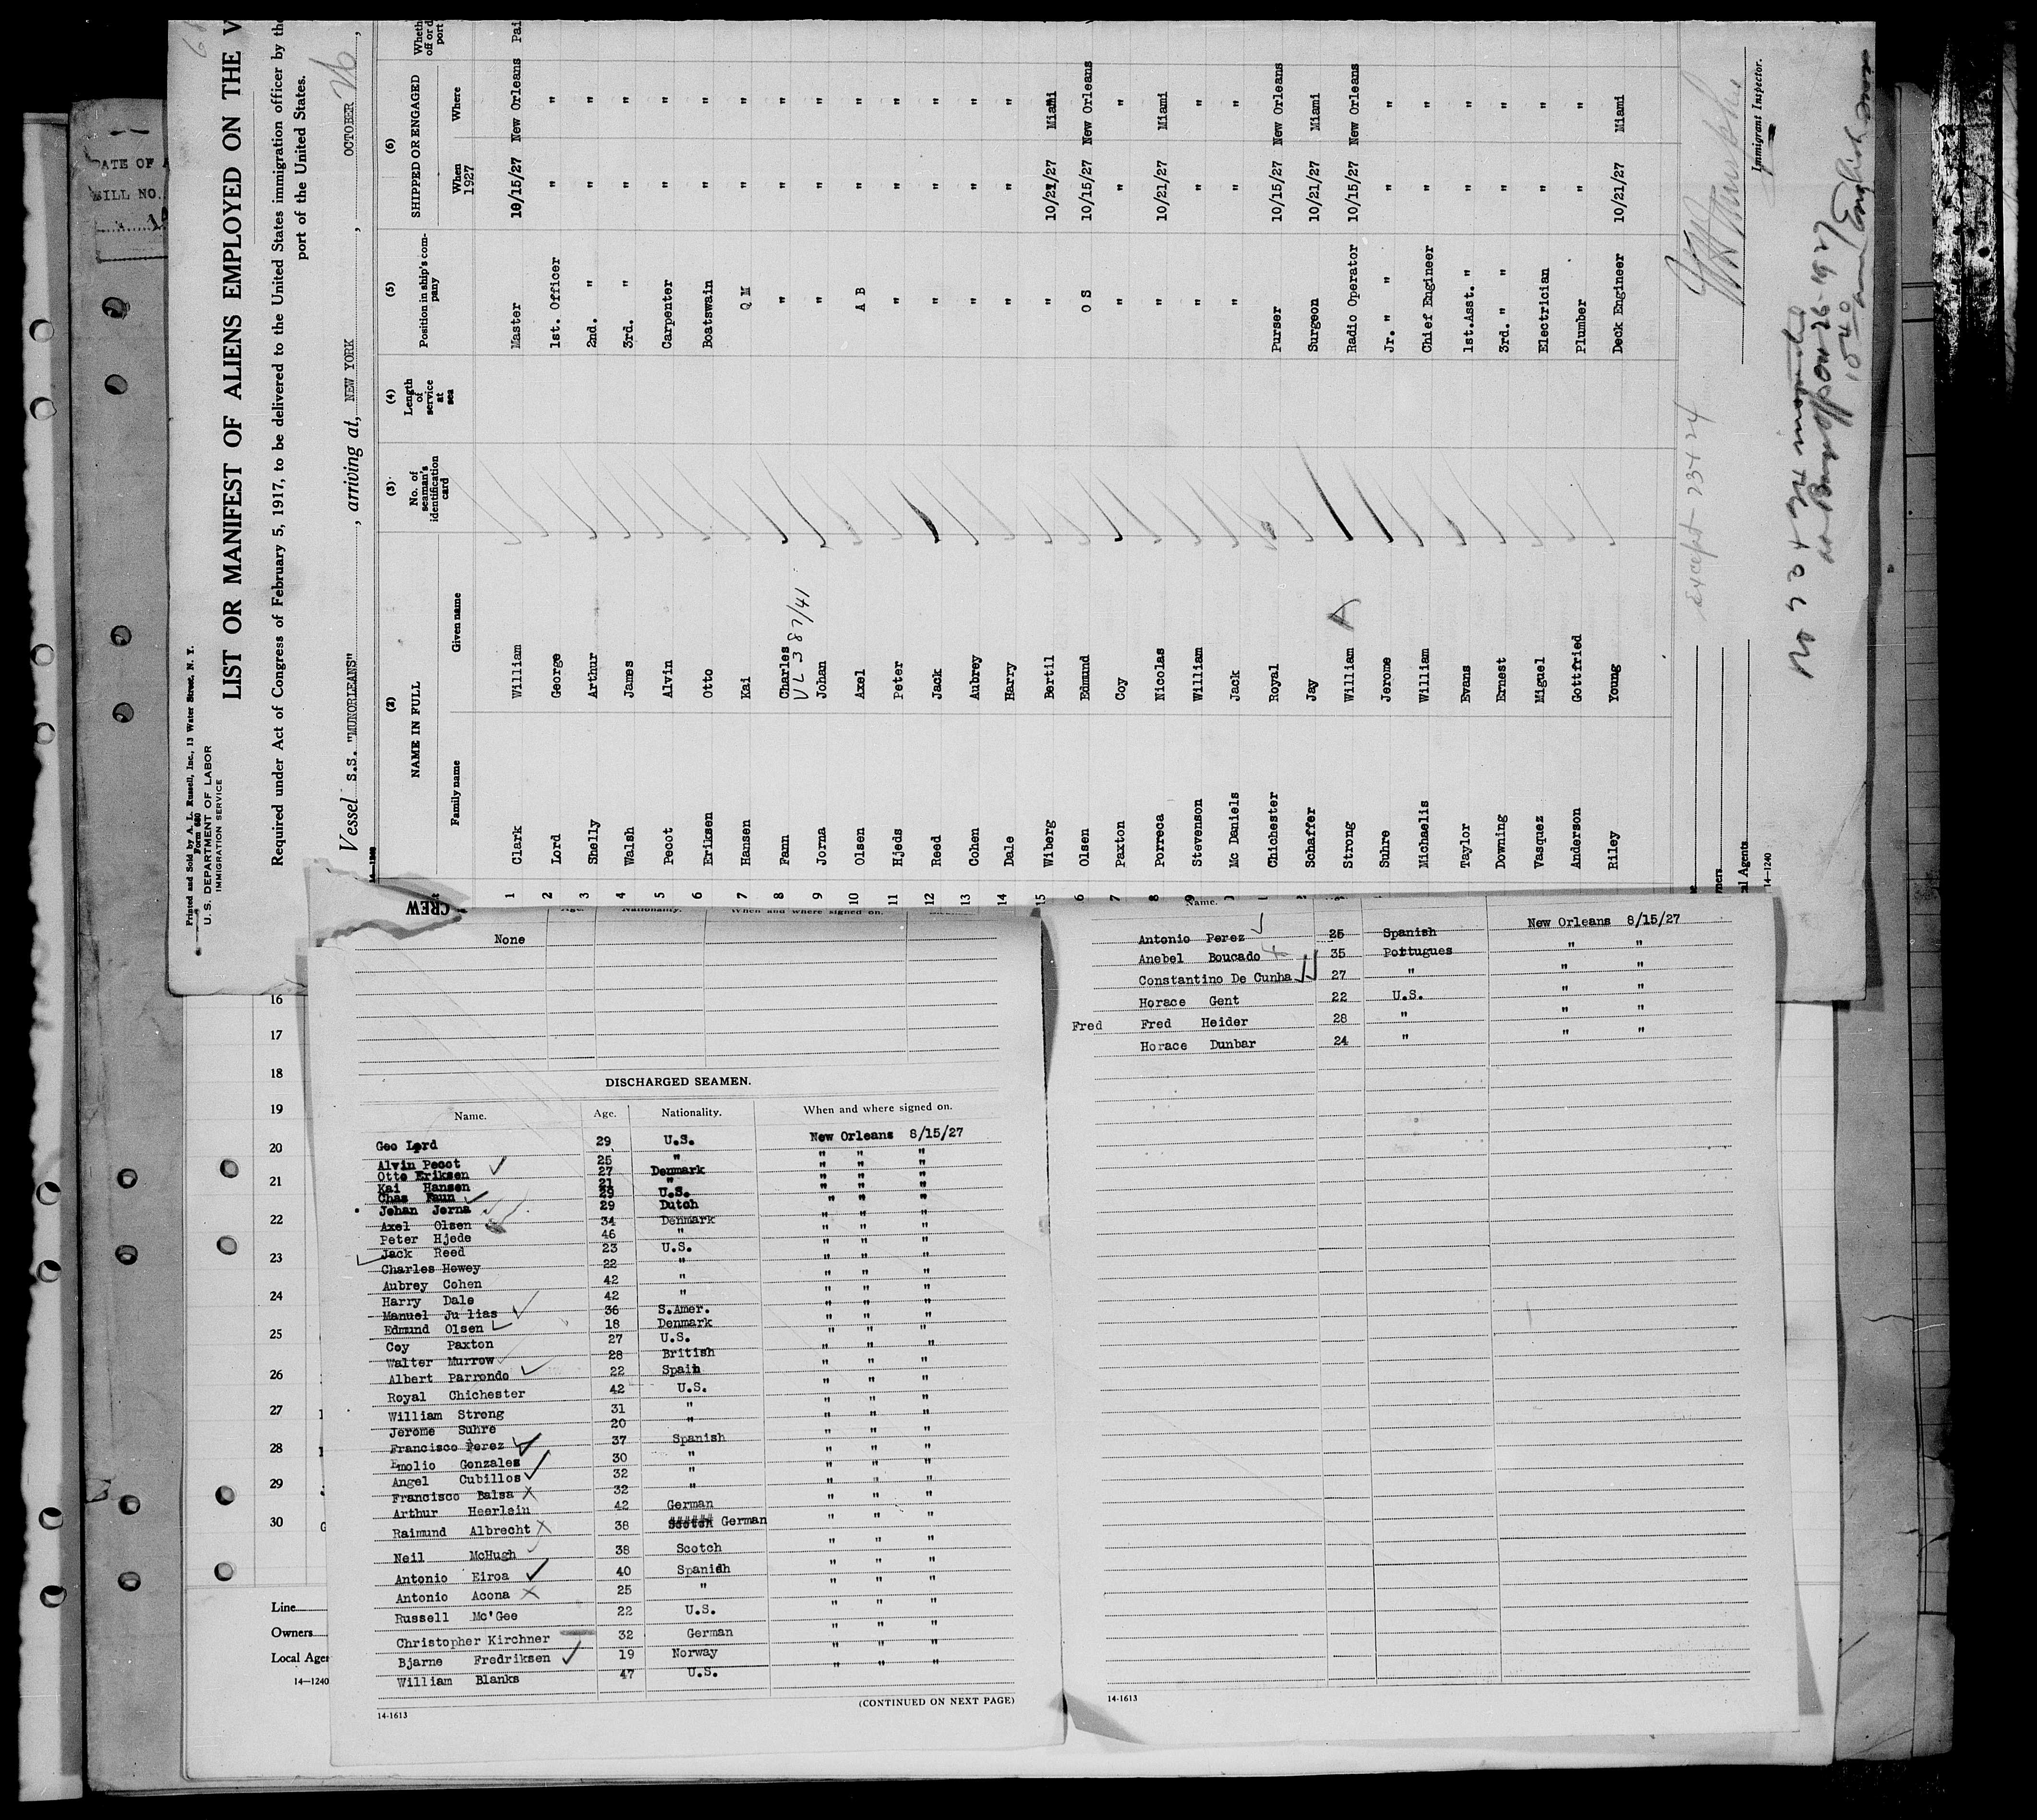 DATE OF A
BILL NO.
Printed and Sold by A. L. Russell, Inc., 13 Water Street, N. Y.
Form 680
U. S. DEPARTMENT OF LABOR
IMMIGRATION SERVICE
LIST OR MANIFEST OF ALIENS EMPLOYED ON THE V
Required under Act of Congress of February 5, 1917, to be delivered to the United States immigration officer by the
port of the United States.
Vessel S.S. "MUNORLEANS", arriving at, NEW YORK, OCTOBER 26,
(2) (3) (4) (5) (6)
NAME IN FULL No. of seaman's identification card Length of service at sea Position in ship's company SHIPPED OR ENGAGED Wheth off or d port
Family name Given name When 1927 Where
1 Clark William Master 10/15/27 New Orleans Pai
2 Lord George 1st. Officer " "
3 Shelly Arthur 2nd. " " "
4 Walsh James 3rd. " " "
5 Pecot Alvin Carpenter " "
6 Eriksen Otto Boatswain " "
7 Hansen Kai Q M " "
8 Fann Charles " " "
VL 387/41
9 Jorna Johan " " "
10 Olsen Axel A B " "
11 Hjeds Peter " " "
12 Reed Jack " " "
13 Cohen Aubrey " " "
14 Dale Harry " " "
15 Wiberg Bertil " 10/21/27 Miami
6 Olsen Edmund O S 10/15/27 New Orleans
7 Paxton Coy " " "
8 Porreca Nicolas " 10/21/27 Miami
9 Stevenson William " " "
Mc Daniels Jack " " "
Chichester Royal Purser 10/15/27 New Orleans
Schaffer Jay Surgeon 10/21/27 Miami
Strong William Radio Operator 10/15/27 New Orleans
Suhre Jerome Jr. " " " "
Michaelis William Chief Engineer " "
Taylor Evans 1st.Asst. " " "
Downing Ernest 3rd. " " " "
Vasquez Miguel Electrician " "
Anderson Gottfried Plumber " "
Riley Young Deck Engineer 10/21/27 Miami
except 23 + 24
Immigrant Inspector.
ners
l Agents
14-1240
CREW
None
DISCHARGED SEAMEN.
Name. Age. Nationality. When and where signed on.
Geo Lord 29 U.S. New Orleans 8/15/27
Alvin Pecot 25 " " " "
Otto Eriksen 27 Denmark " " "
Kai Hansen 21 " " " "
Chas Faun 29 U.S. " " "
Johan Jorna 29 Dutch " " "
Axel Olsen 34 Denmark " " "
Peter Hjede 46 " " " "
Jack Reed 23 U.S. " " "
Charles Hewey 22 " " " "
Aubrey Cohen 42 " " " "
Harry Dale 42 " " " "
Manuel Ju lias 36 S.Amer. " " "
Edmund Olsen 18 Denmark " " "
Coy Paxton 27 U.S. " " "
Walter Murrow 28 British " " "
Albert Parrondo 22 Spain " " "
Royal Chichester 42 U.S. " " "
William Strong 31 " " " "
Jerome Suhre 20 " " " "
Francisco Perez 37 Spanish " " "
Emolio Gonzales 30 " " " "
Angel Cubillos 32 " " " "
Francisco Balsa 32 " " " "
Arthur Heerlein 42 German " " "
Raimund Albrecht 38 ###### German " " "
Neil McHugh 38 Scotch " " "
Antonio Eiroa 40 Spanish " " "
Antonio Acona 25 " " " "
Russell Mc'Gee 22 U.S. " " "
Christopher Kirchner 32 German " " "
Bjarne Fredriksen 19 Norway " " "
William Blanks 47 U.S. " " "
(CONTINUED ON NEXT PAGE)
14-1613
Name.
Antonio Perez 25 Spanish New Orleans 8/15/27
Anebel Boucado 35 Portugues " "
Constantino De Cunha 27 " " "
Horace Gent 22 U.S. " "
Fred Fred Heider 28 " " "
Horace Dunbar 24 " " "
14-1613
16
17
18
19
20
21
22
23
24
25
26
27
28
29
30 G
Line
Owners
Local Agen
14-1240